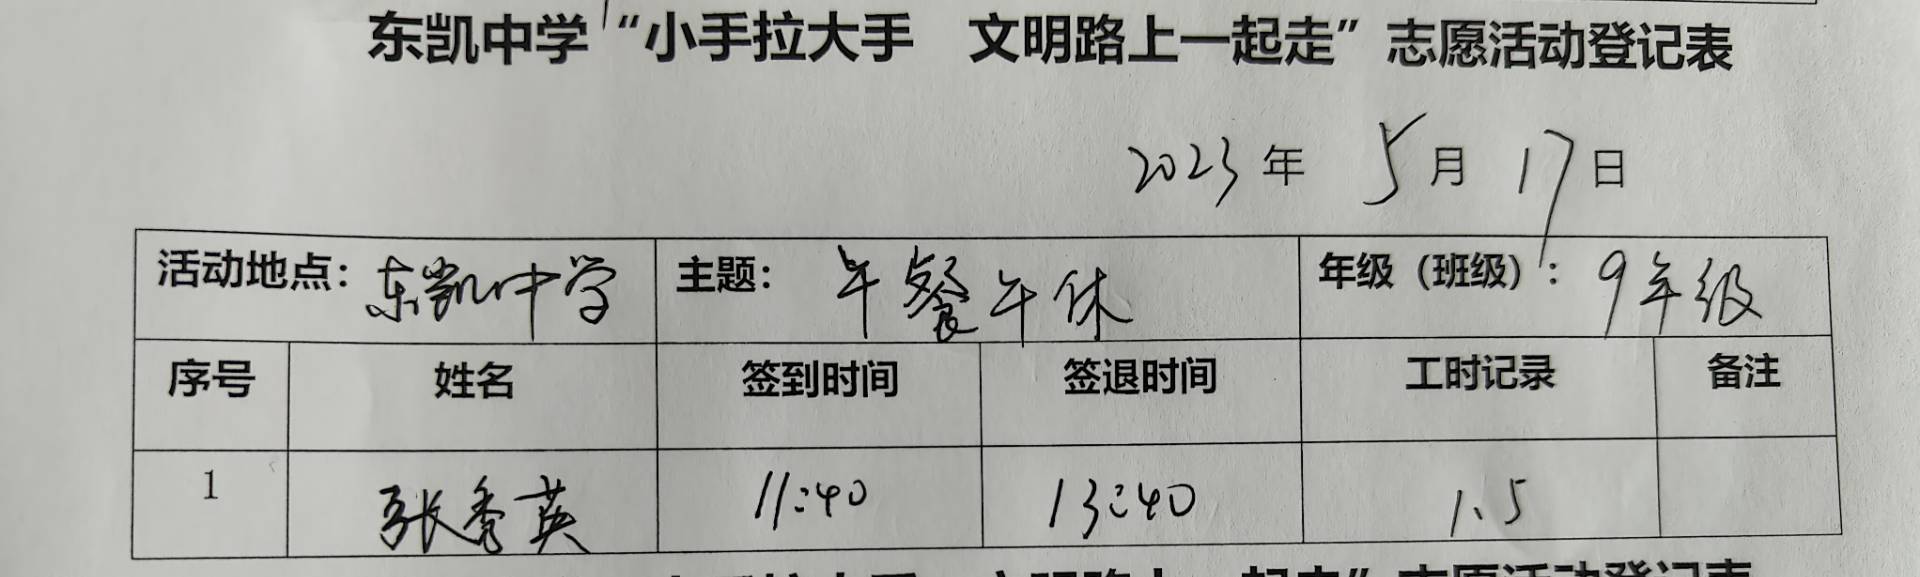 东凯中学“小手拉大手 文明路上一起走”志愿活动登记表
2023年 5月17日
活动地点：东凯中学 主题：午餐午休 年级（班级）：9年级
序号 姓名 签到时间 签退时间 工时记录 备注
1 张秀英 11:40 13:40 1.5
小手拉大手 文明路上一起走”志愿活动登记表